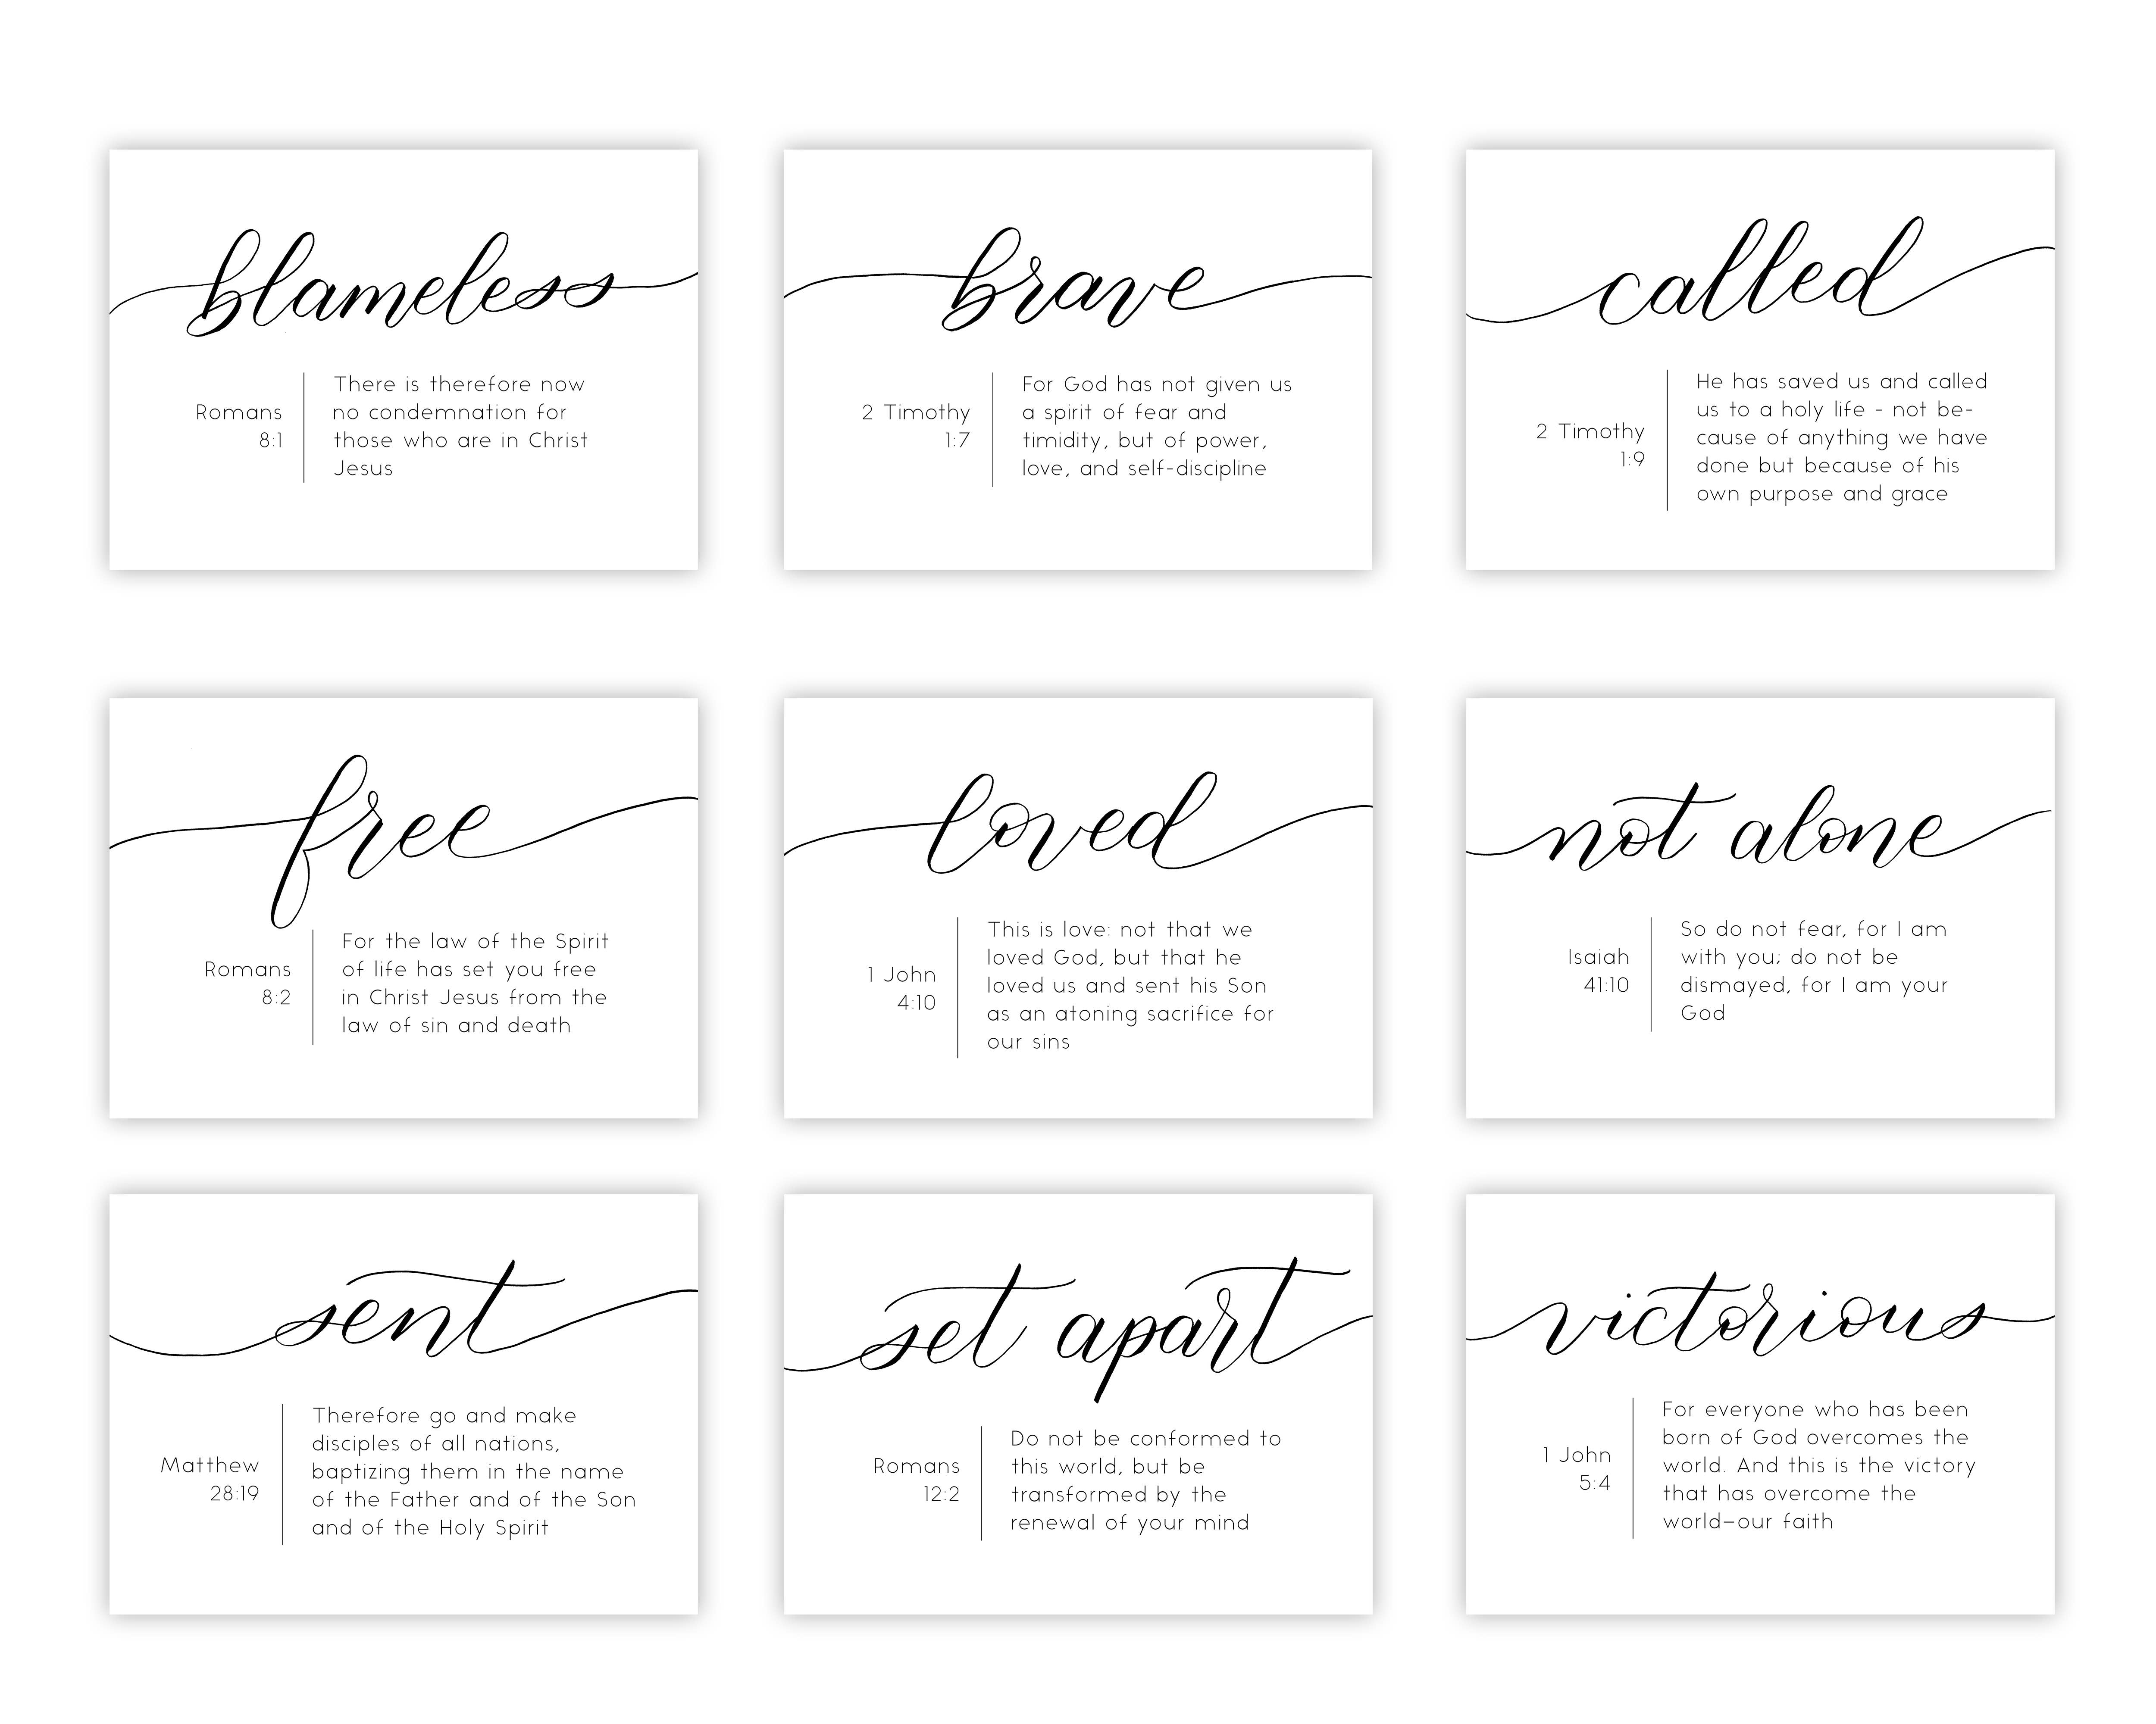 blameless
Romans
8:1
There is therefore now
no condemnation for
those who are in Christ
Jesus
brave
2 Timothy
1:7
For God has not given us
a spirit of fear and
timidity, but of power,
love, and self-discipline
called
2 Timothy
1:9
He has saved us and called
us to a holy life - not be-
cause of anything we have
done but because of his
own purpose and grace
free
Romans
8:2
For the law of the Spirit
of life has set you free
in Christ Jesus from the
law of sin and death
loved
1 John
4:10
This is love: not that we
loved God, but that he
loved us and sent his Son
as an atoning sacrifice for
our sins
not alone
Isaiah
41:10
So do not fear, for I am
with you; do not be
dismayed, for I am your
God
sent
Matthew
28:19
Therefore go and make
disciples of all nations,
baptizing them in the name
of the Father and of the Son
and of the Holy Spirit
set apart
Romans
12:2
Do not be conformed to
this world, but be
transformed by the
renewal of your mind
victorious
1 John
5:4
For everyone who has been
born of God overcomes the
world. And this is the victory
that has overcome the
world—our faith